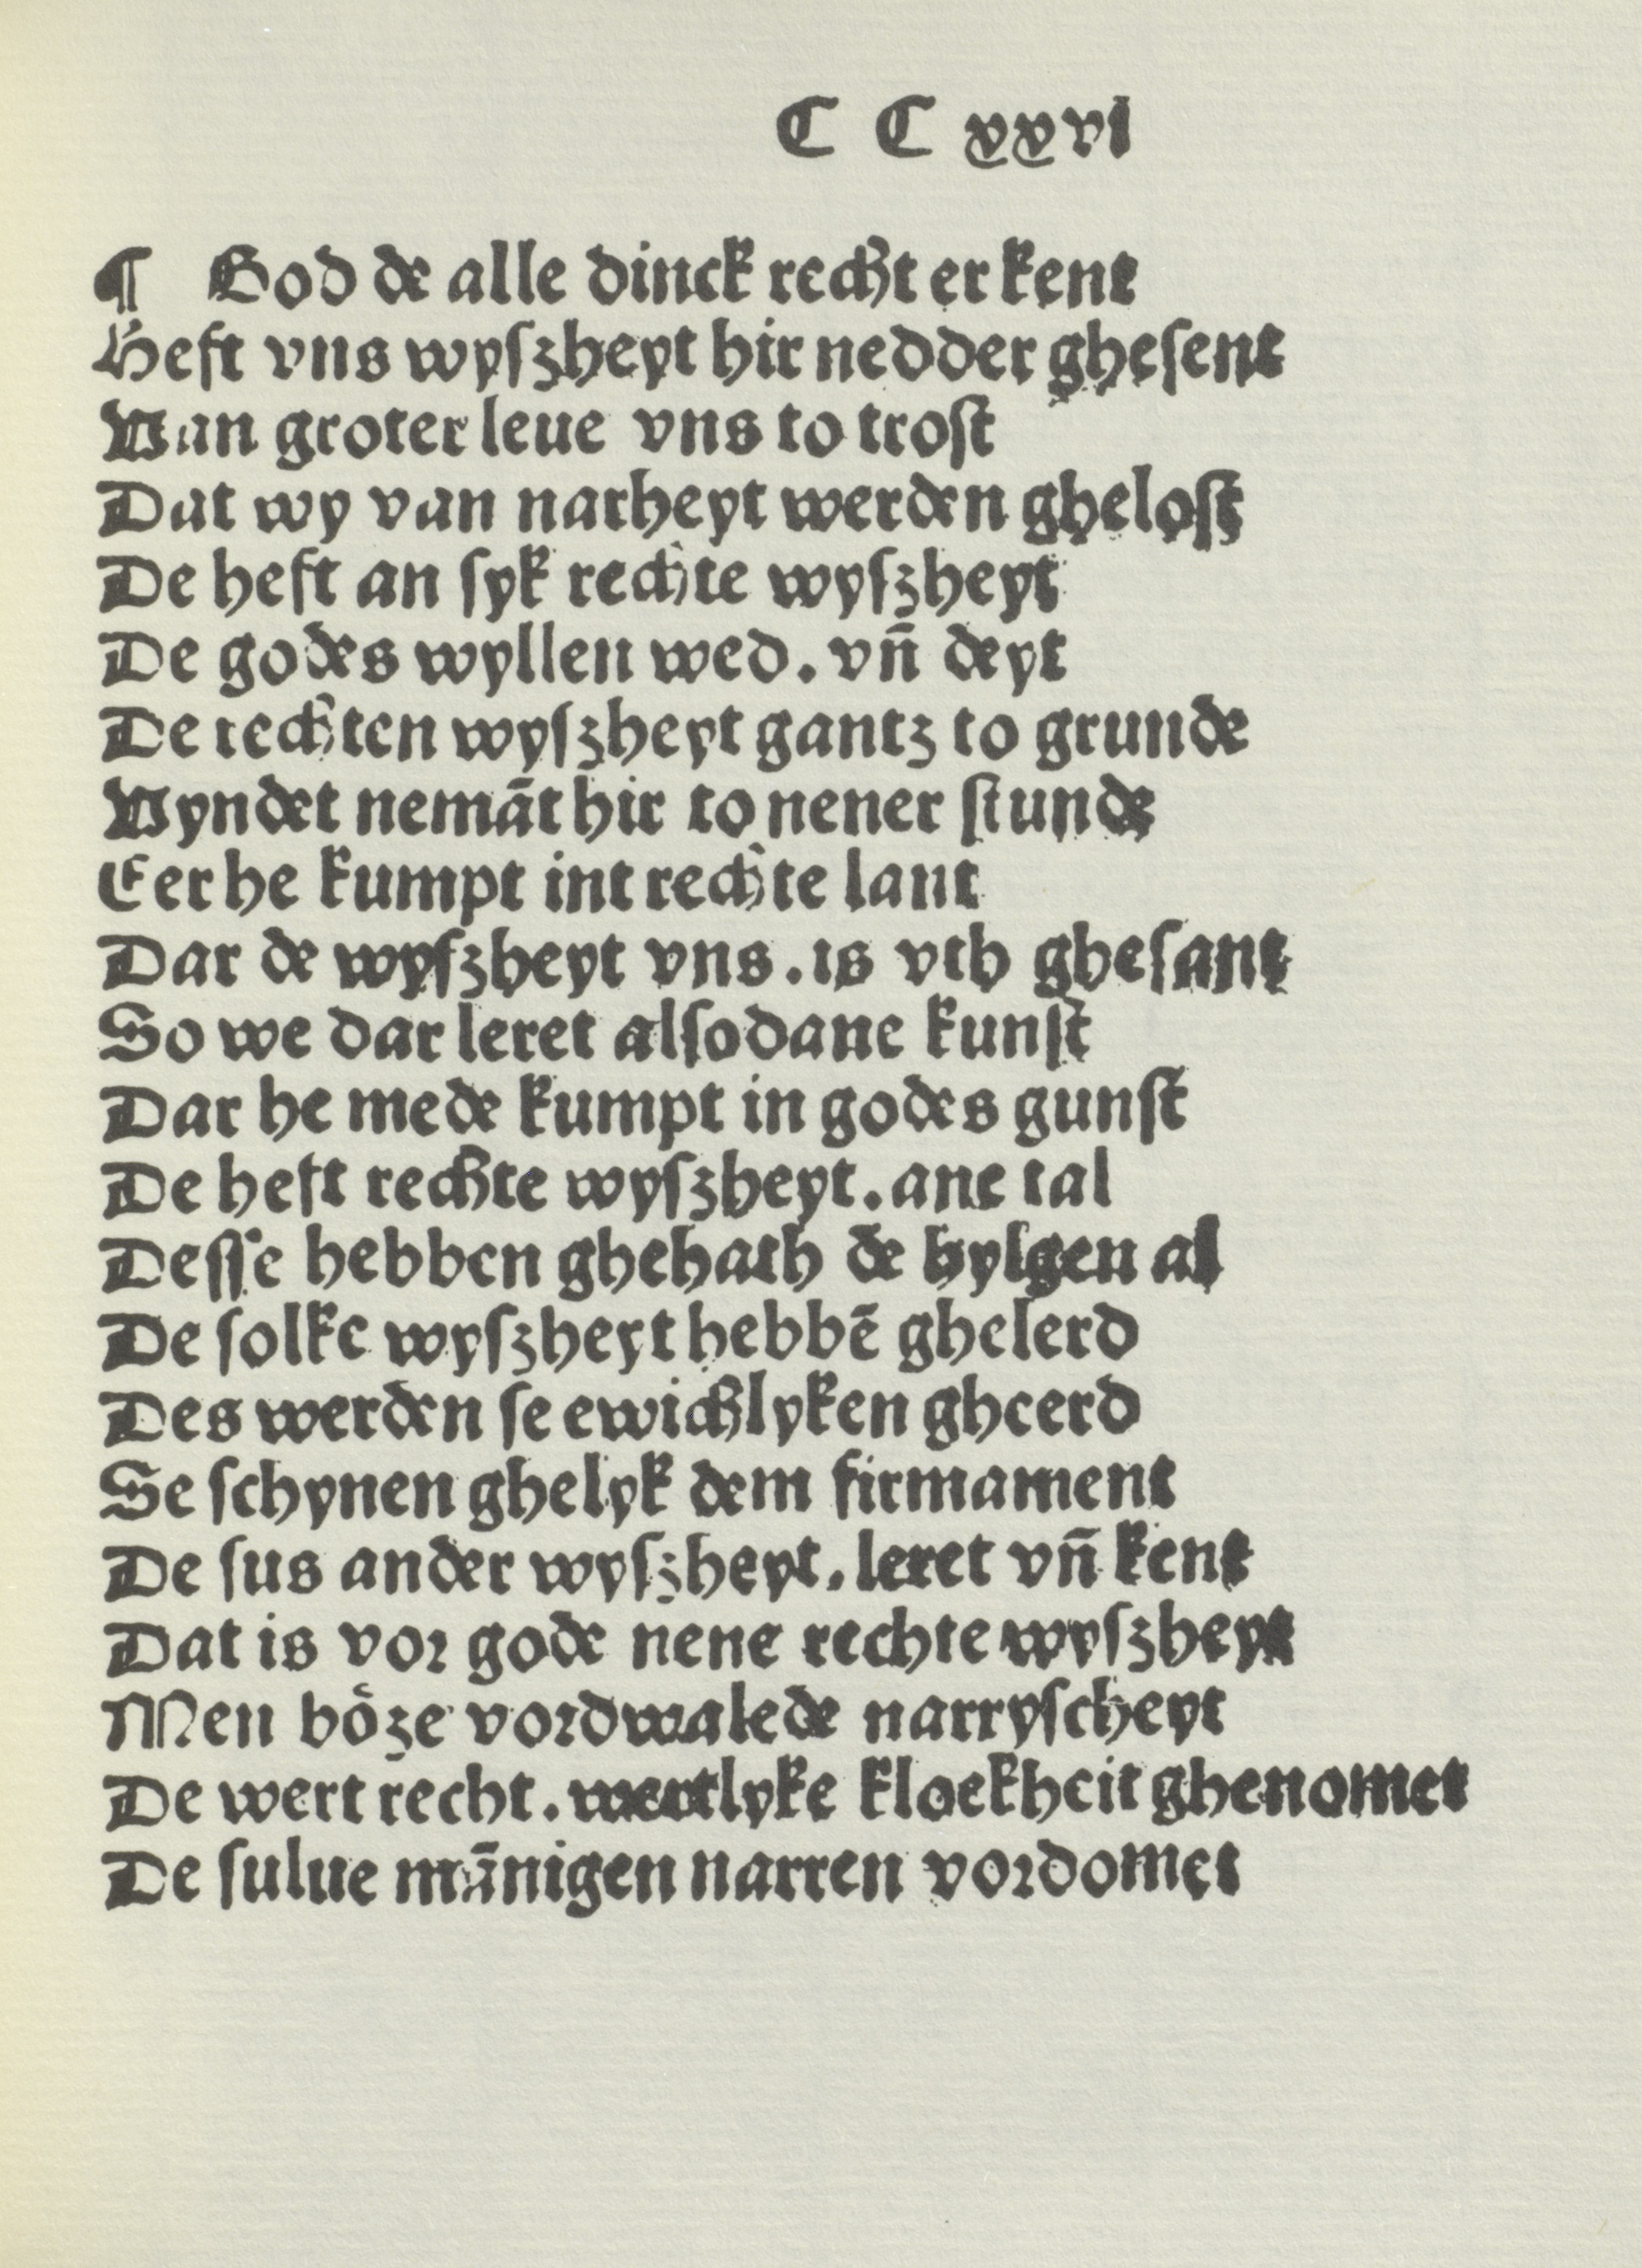 C C xxvi
¶ God de alle dinck recht er kent
Heft vns wyſzheyt hir nedder gheſent
Van groter leue vns to troſt
Dat wy van narheyt werden gheloſt
De heft an ſyk rechte wyſzheyt
De godes wyllen wed. vn̄ deyt
De rechten wyſzheyt gantz to grunde
Vyndet nemāt hir to nener ſtunde
Eer he kumpt int rechte lant
Dar de wyſzheyt vns. is vth gheſant
So we dar leret alſodane kunſt
Dar he mede kumpt in godes gunſt
De heft rechte wyſzheyt. ane tal
Deſſe hebben ghehath de hylgen al
De ſolke wyſzheyt hebbē ghelerd
Des werden ſe ewichlyken gheerd
Se ſchynen ghelyk dem firmament
De ſus ander wyſzheyt. leret vn̄ kent
Dat is vor gode nene rechte wyſzheyt
Men boͤze vordwalede narryſcheyt
De wert recht. wertlyke kloekheit ghenomet
De ſulue mānigen narren vordomet